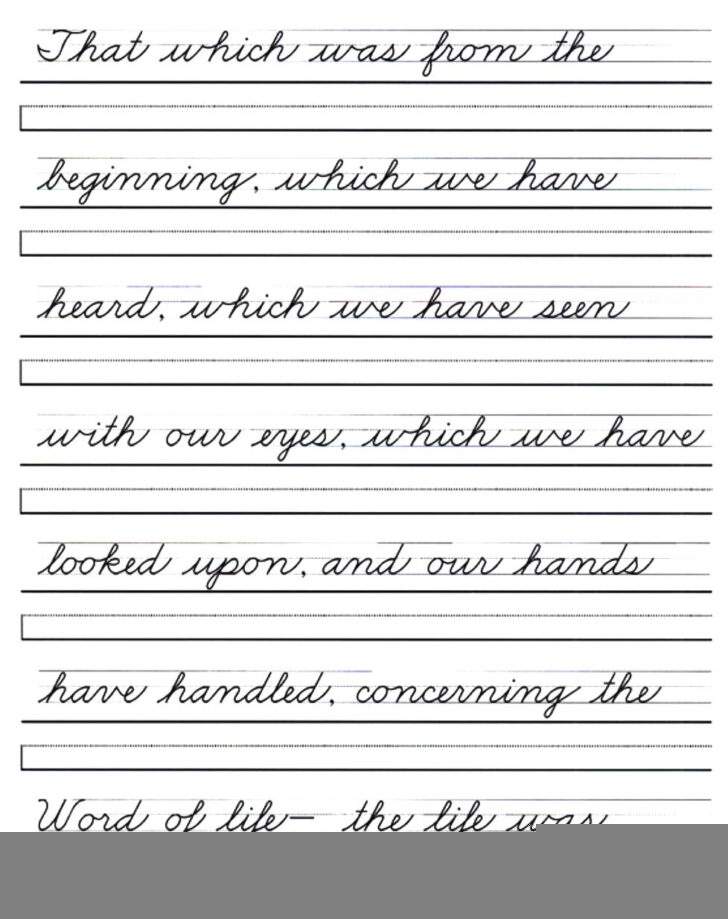 That which was from the
beginning, which we have
heard, which we have seen
with our eyes, which we have
looked upon, and our hands
have handled, concerning the
Word of life— the life was